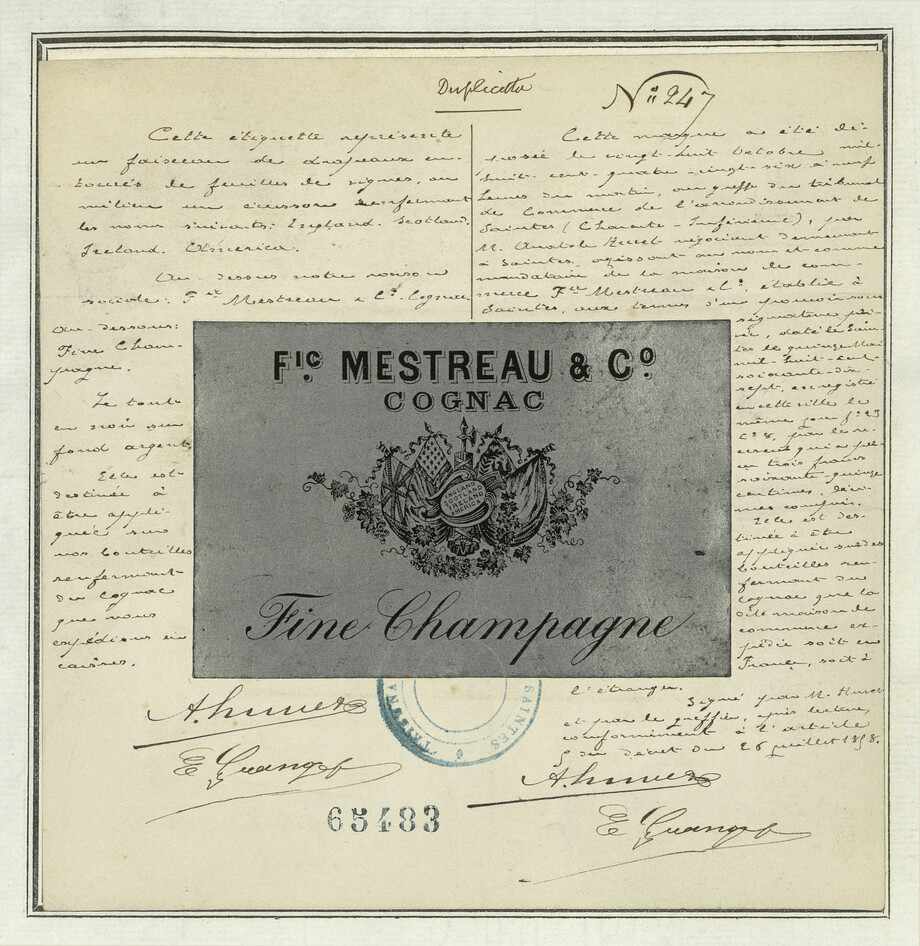 Duplicata
Nº 247
Cette étiquette représente
un faisceau de drapeaux en-
tourés de feuilles de vignes, au
milieu un écusson renfermant
les noms suivants: England. Scotland.
Ireland. America.
Au-dessus notre raison
sociale: Fic Mestreau & Cº. Cognac
au-dessous:
Fine Cham-
pagne.
Le tout
en noir sur
fond argent.
Elle est
destinée à
être appli-
quée sur
nos bouteilles
renfermant
du Cognac
que nous
expédions en
caisses.
Cette marque a été dé-
posée le vingt-huit Octobre mil-
huit-cent-quatre-vingt-six à neuf
heures du matin, au greffe du tribunal
de Commerce de l'arrondissement de
Saintes (Charente-Inférieure), par
M. Anatole négociant demeurant
à Saintes, agissant au nom et comme
mandataire de la maison de com-
merce Fic Mestreau & Cº, établie à
Saintes, aux termes d'un pouvoir sous
signature pri-
vée, daté de Sain-
tes le quinze Mai
mil-huit-cent-
soixante-dix-
sept, enregistré
en cette ville le
même jour fº 23
Cº 8, par le re-
ceveur qui a perçu
trois francs
soixante quinze
centimes, déci-
mes compris.
Elle est des-
tinée à être
appliquée sur des
bouteilles ren-
fermant du
Cognac que la
dite maison de
commerce ex-
pédie soit en
France, soit à
l'étranger.
Signé par M.
et par le greffier, après lecture,
conformément à l'article
5 du décret du 26 juillet 1858.
FIC MESTREAU & Cº
COGNAC
ENGLAND
SCOTLAND
IRELAND
AMERICA
Fine Champagne
TRIBUNA
SAINTES
65483